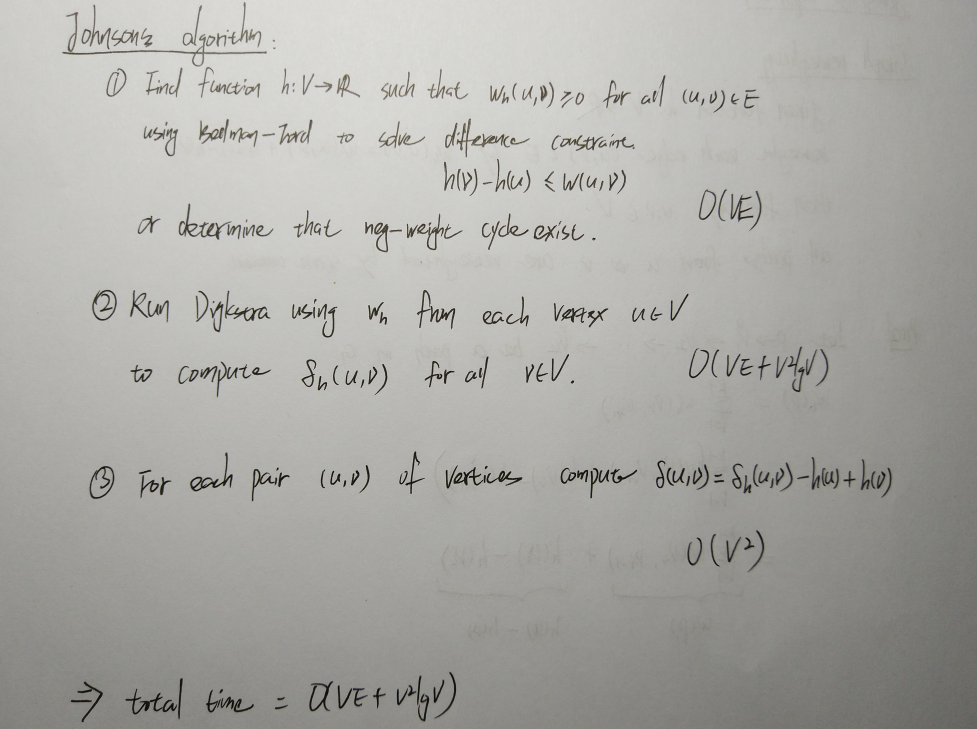 Johnsons algorithm:
① Find function h: V→ℝ such that wₕ(u,v) ≥ 0 for all (u,v) ∈ E
using Bellman-Ford to solve difference constraint.
h(v) - h(u) ≤ w(u,v)
or determine that neg-weight cycle exist. O(VE)
② Run Dijkstra using wₕ from each vertex u ∈ V
to compute δₕ(u,v) for all v ∈ V. O(VE + V²lgV)
③ For each pair (u,v) of vertices compute δ(u,v) = δₕ(u,v) - h(u) + h(v)
O(V²)
⇒ total time = O(VE + V²lgV)